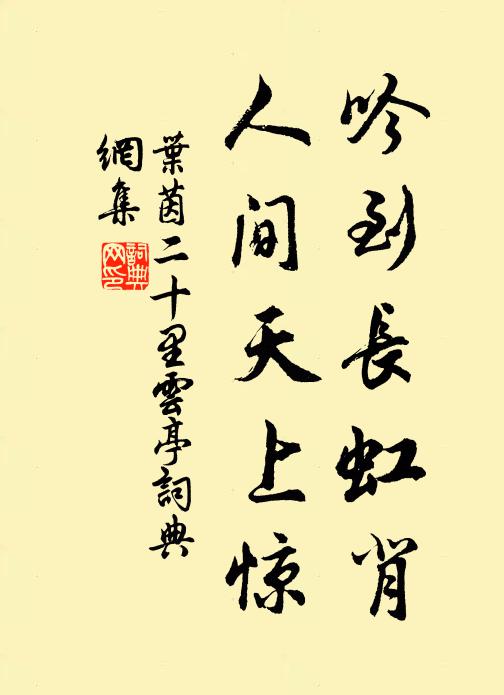 吟到長虹背
人間天上惊
葉茵二十里雲亭詞典
網集
詞典網印